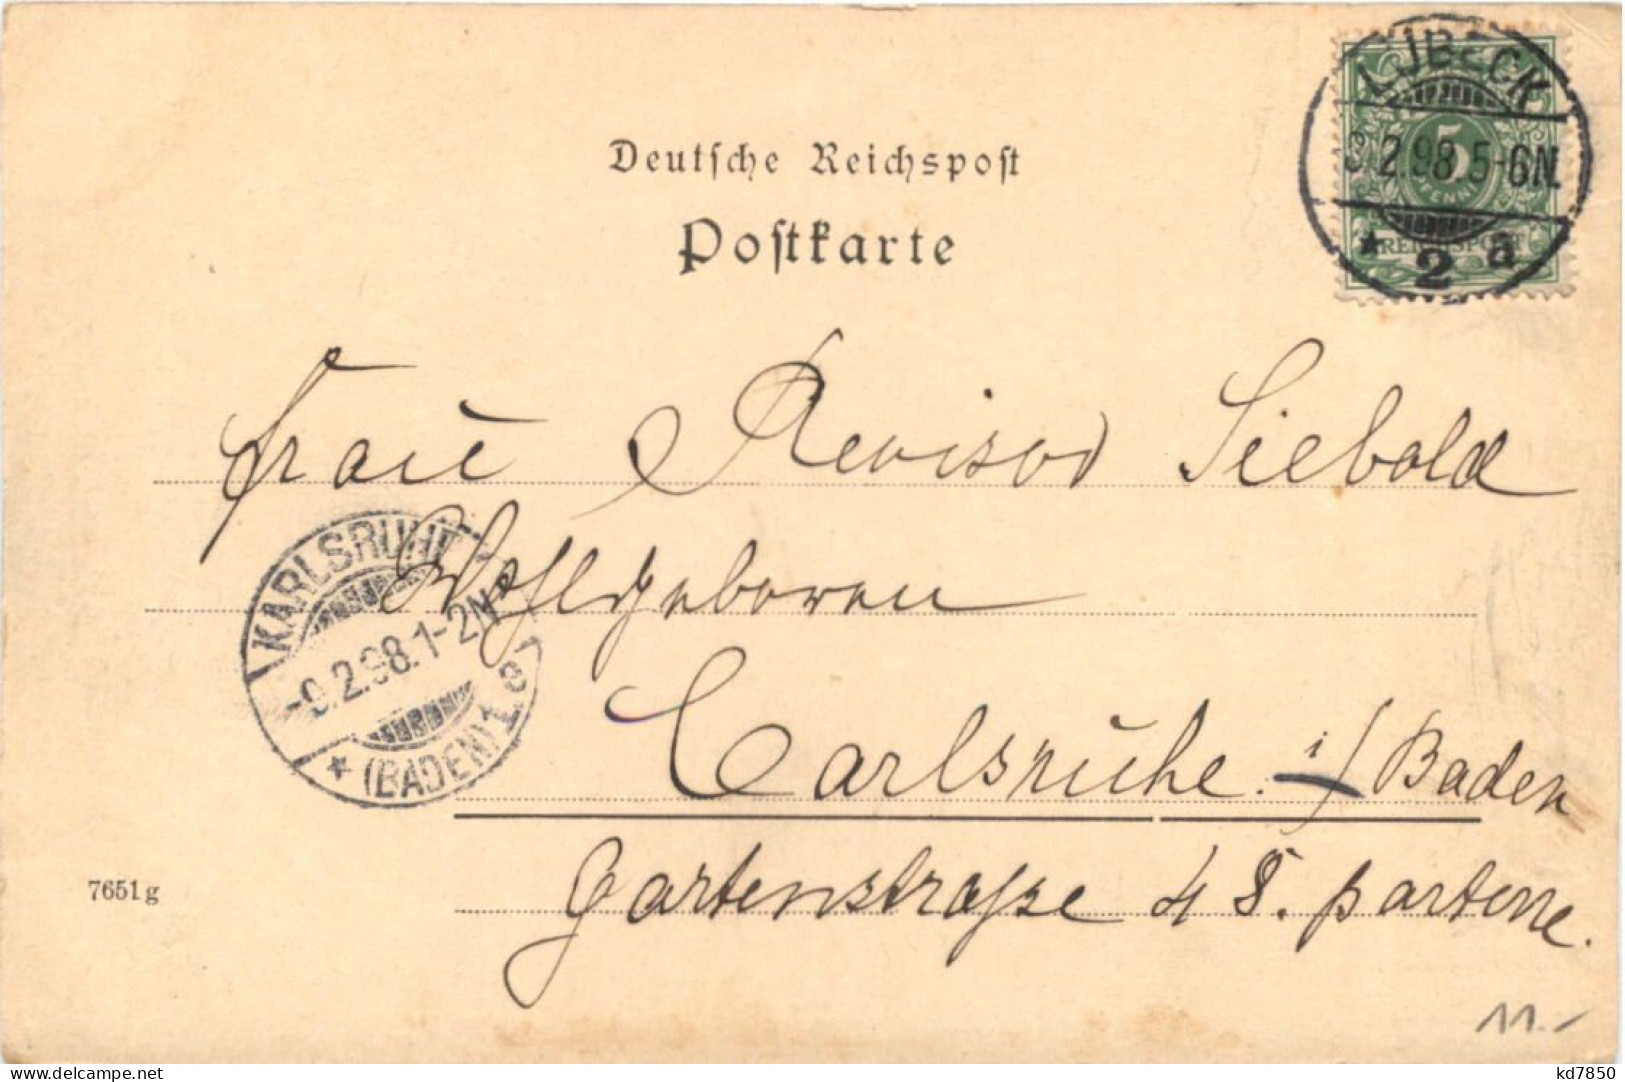 LÜBECK
8.2.98.5-6N.
* 2 a
5
PFENNIG
REICHSPOST
Deutsche Reichspost
Postkarte
Frau Revisor Siebold
Wohlgeboren
KARLSRUHE
-9.2.98.1-2N
* (BADEN) 1. e
Carlsruhe i/Baden
Gartenstrasse 48. parterre.
7651 g
11.-
delcampe.net
kd7850